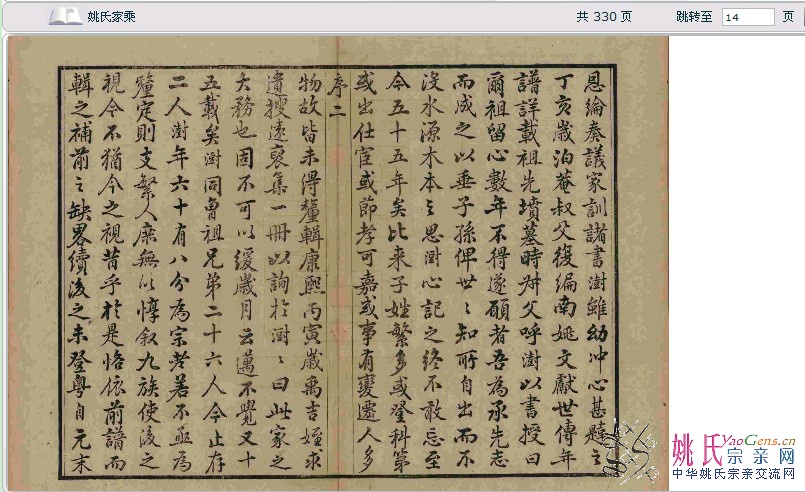 姚氏家乘
共 330 页
跳转至 14 页
恩綸奏議家訓諸書澍雖幼冲心甚韙之
丁亥歲泊菴叔父復編南姚文獻世傳年
譜詳載祖先墳墓時冰父呼澍以書授曰
爾祖留心數年不得遂願者吾為承先志
而成之以垂子孫俾世〻知所自出而不
没水源木本之思澍心記之終不敢忘至
今五十五年矣比来子姓繁多或登科第
或出仕宦或節孝可嘉或事有變遷人多
序二
物故皆未得釐輯康熙丙寅歲禹吉姪求
遺搜遠裒集一冊以詢於澍〻曰此家之
大務也固不可以緩歲月云邁不覺又十
五載矣澍同曾祖兄弟二十六人今止存
二人澍年六十有八分為宗老若不亟為
釐定則支繁人庶無以惇叙九族使後之
視今不猶今之視昔乎於是恪依前譜而
輯之補前之缺畧續後之未登粤自元末
姚氏宗亲网
YaoGens.cn
中华姚氏宗亲交流网